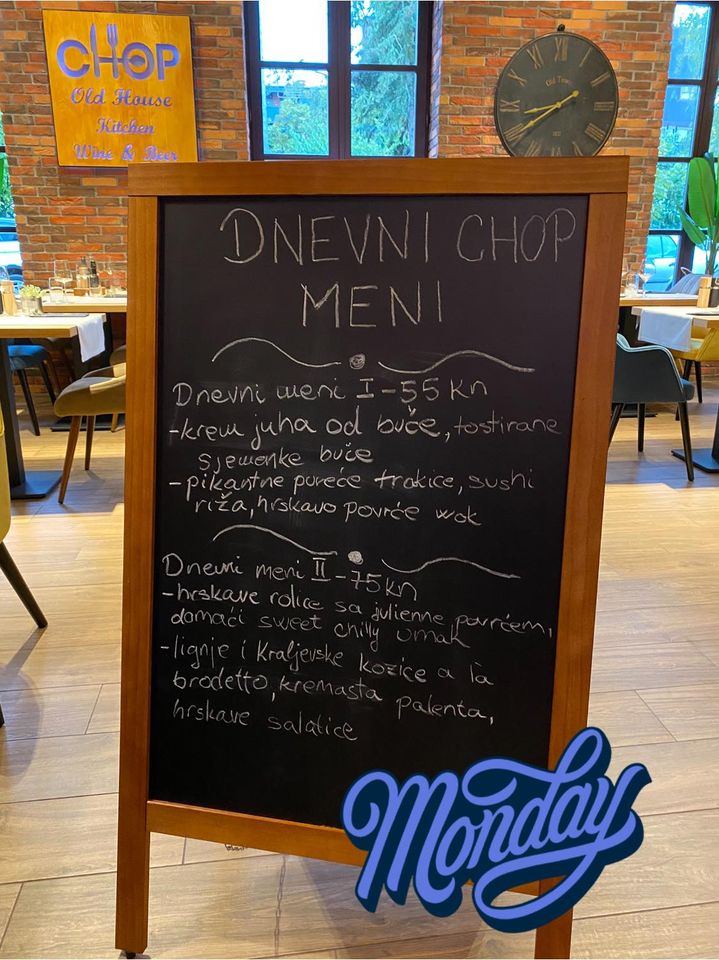 CHOP
Old House
Kitchen
Wine & Beer
Old Town
DNEVNI CHOP
MENI
Dnevni meni I - 55 Kn
- krem juha od buče, tostirane
sjemenke buče
- pikantne pureće trakice, sushi
riža, hrskavo povrće wok
Dnevni meni II - 75 Kn
- hrskave rolice sa julienne povrćem,
domaći sweet chilly umak
- lignje i Kraljevske kozice a la
brodetto, kremasta palenta,
hrskave salatice
Monday